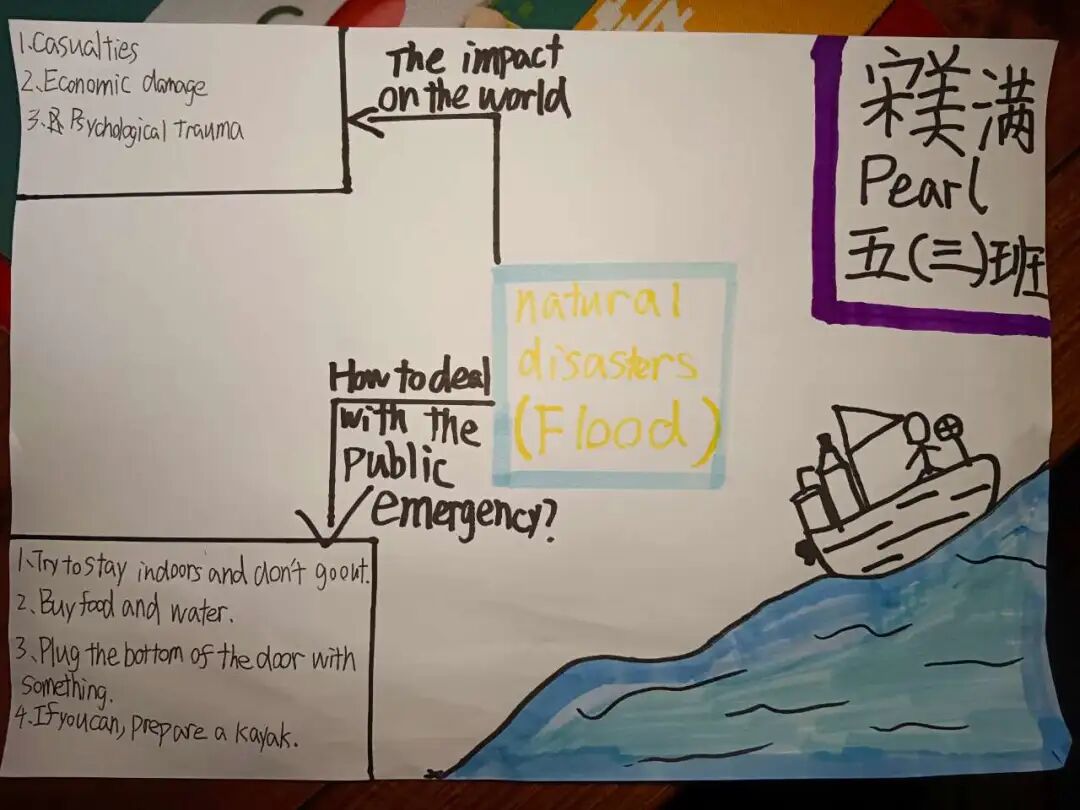 1.Casualties
2.Economic damage
3.Psychological trauma
The impact
on the world
宋美满
Pearl
五(三)班
natural
disasters
(Flood)
How to deal
with the
public
emergency?
1.Try to stay indoors and don't go out.
2.Buy food and water.
3.Plug the bottom of the door with
something.
4.If you can, prepare a kayak.